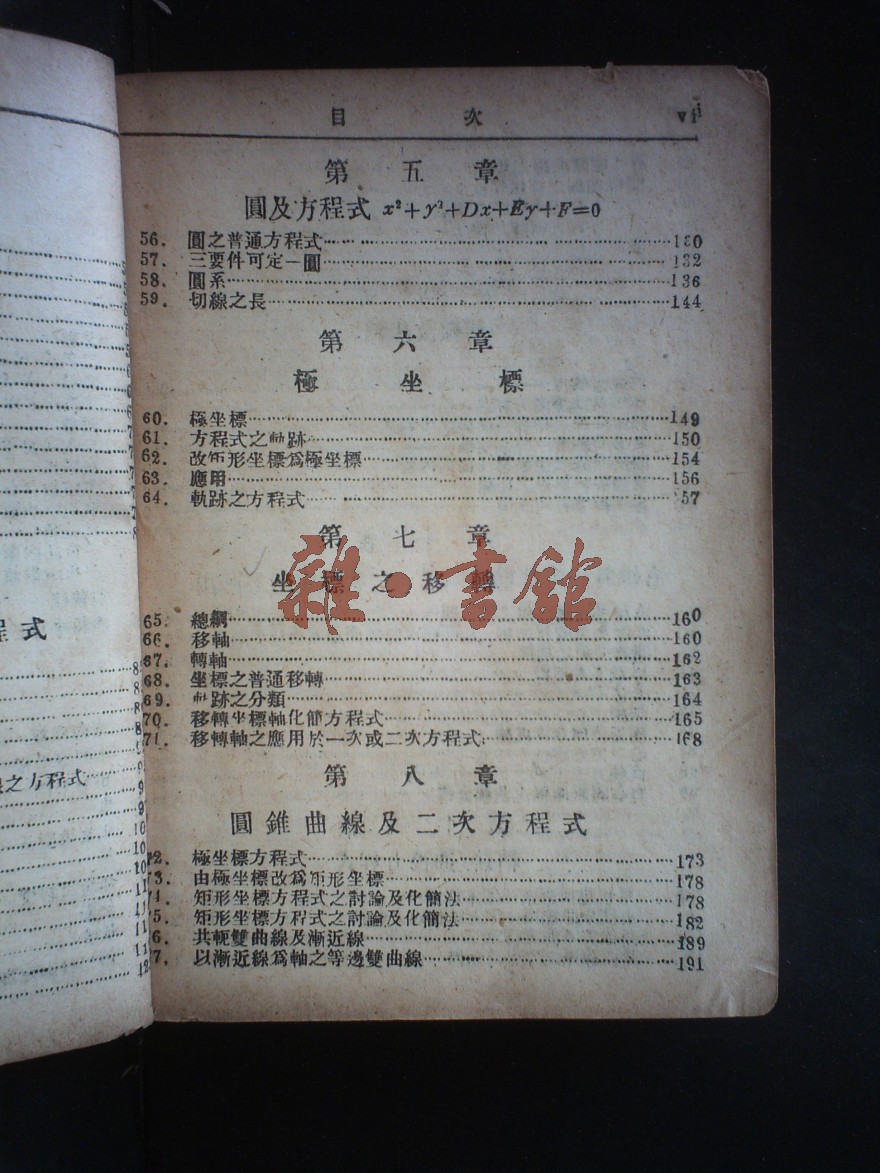 目 次 vii
第五章
圓及方程式 x²+y²+Dx+Ey+F=0
56. 圓之普通方程式 130
57. 三要件可定一圓 132
58. 圓系 136
59. 切線之長 144
第六章
極坐標
60. 極坐標 149
61. 方程式之軌跡 150
62. 改矩形坐標爲極坐標 154
63. 應用 156
64. 軌跡之方程式 57
第七章
坐標之移轉
65. 總綱 160
66. 移軸 160
67. 轉軸 162
68. 坐標之普通移轉 163
69. 軌跡之分類 164
70. 移轉坐標軸化簡方程式 165
71. 移轉軸之應用於一次或二次方程式 168
第八章
圓錐曲線及二次方程式
72. 極坐標方程式 173
73. 由極坐標改爲矩形坐標 178
74. 矩形坐標方程式之討論及化簡法 178
75. 矩形坐標方程式之討論及化簡法 182
6. 共軛雙曲線及漸近線 189
7. 以漸近線爲軸之等邊雙曲線 191
程式
線之方程式
雜·書館